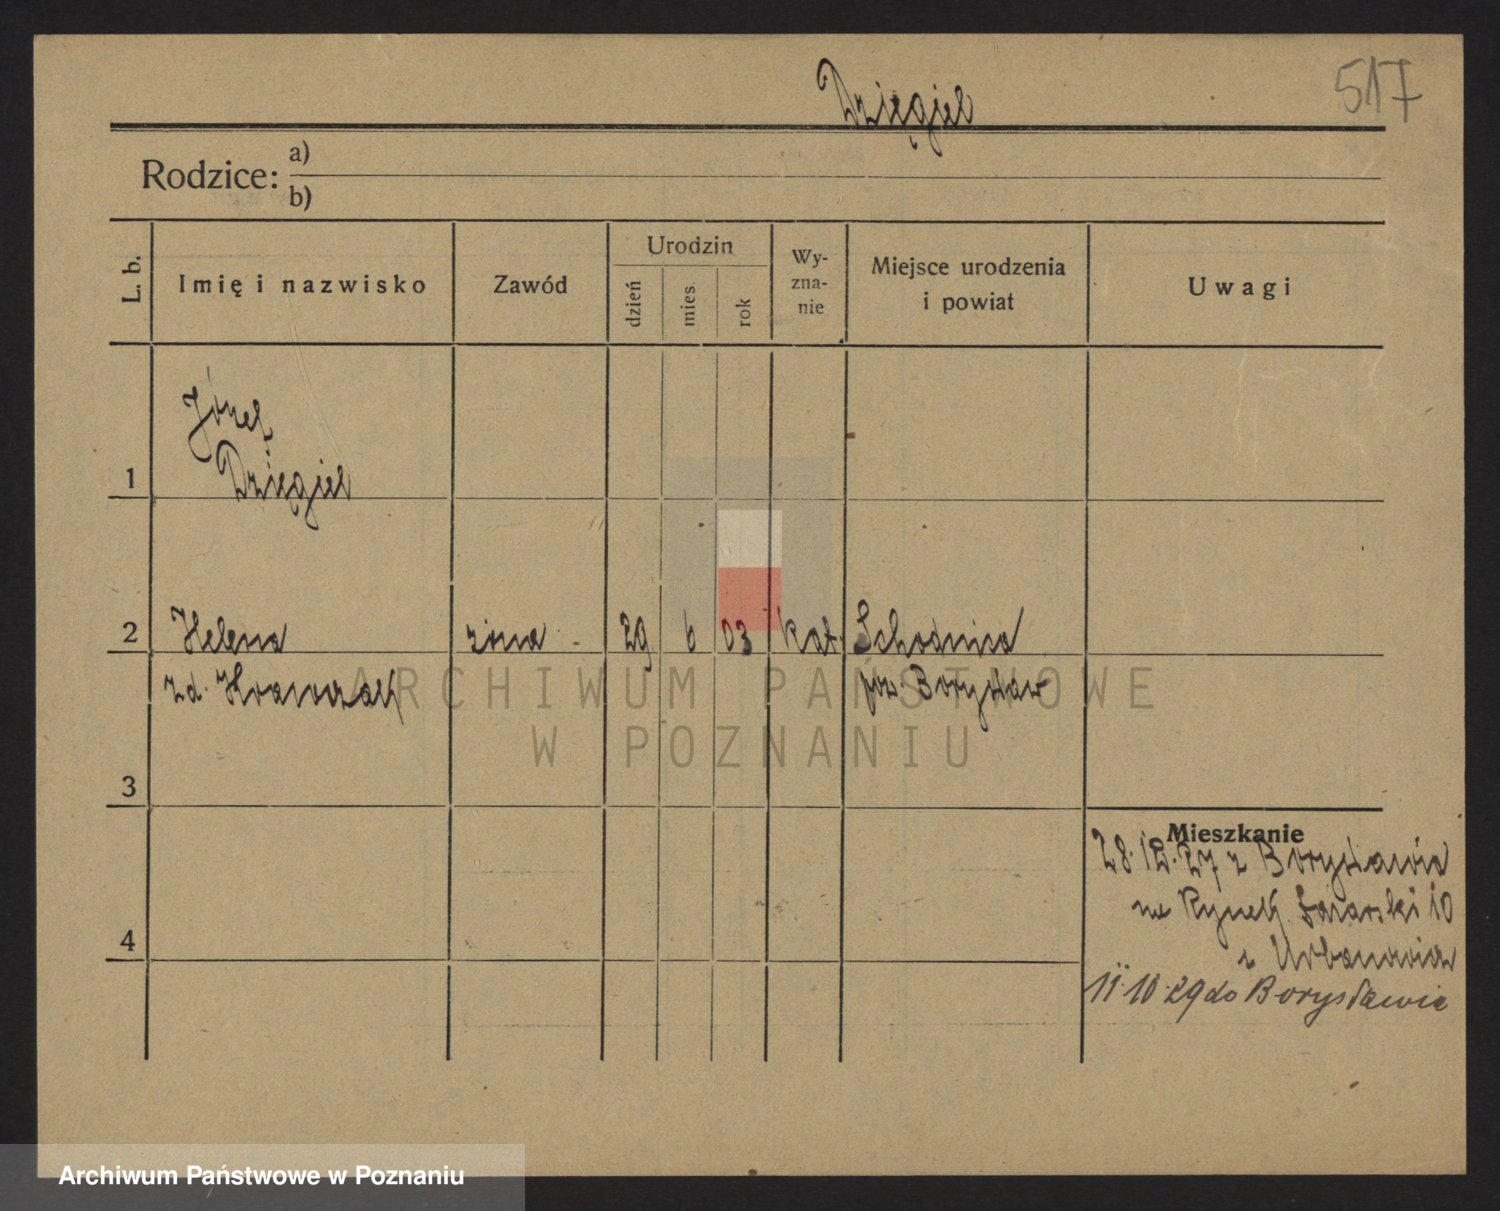 Dzięgiel
517
Rodzice:
a)
b)
L. b.
Imię i nazwisko
Zawód
Urodzin
dzień
mies.
rok
Wy-
zna-
nie
Miejsce urodzenia
i powiat
Uwagi
Józef
1
Dzięgiel
2
Helena
żona -
29
6
03
kat.
Schodnica
zd.
pow. Borysław
ARCHIWUM PAŃSTWOWE
W POZNANIU
3
Mieszkanie
28.12.27 z Borysławia
na Rynek Łazarski 10
z
4
11.10.29 do Borysławia
Archiwum Państwowe w Poznaniu